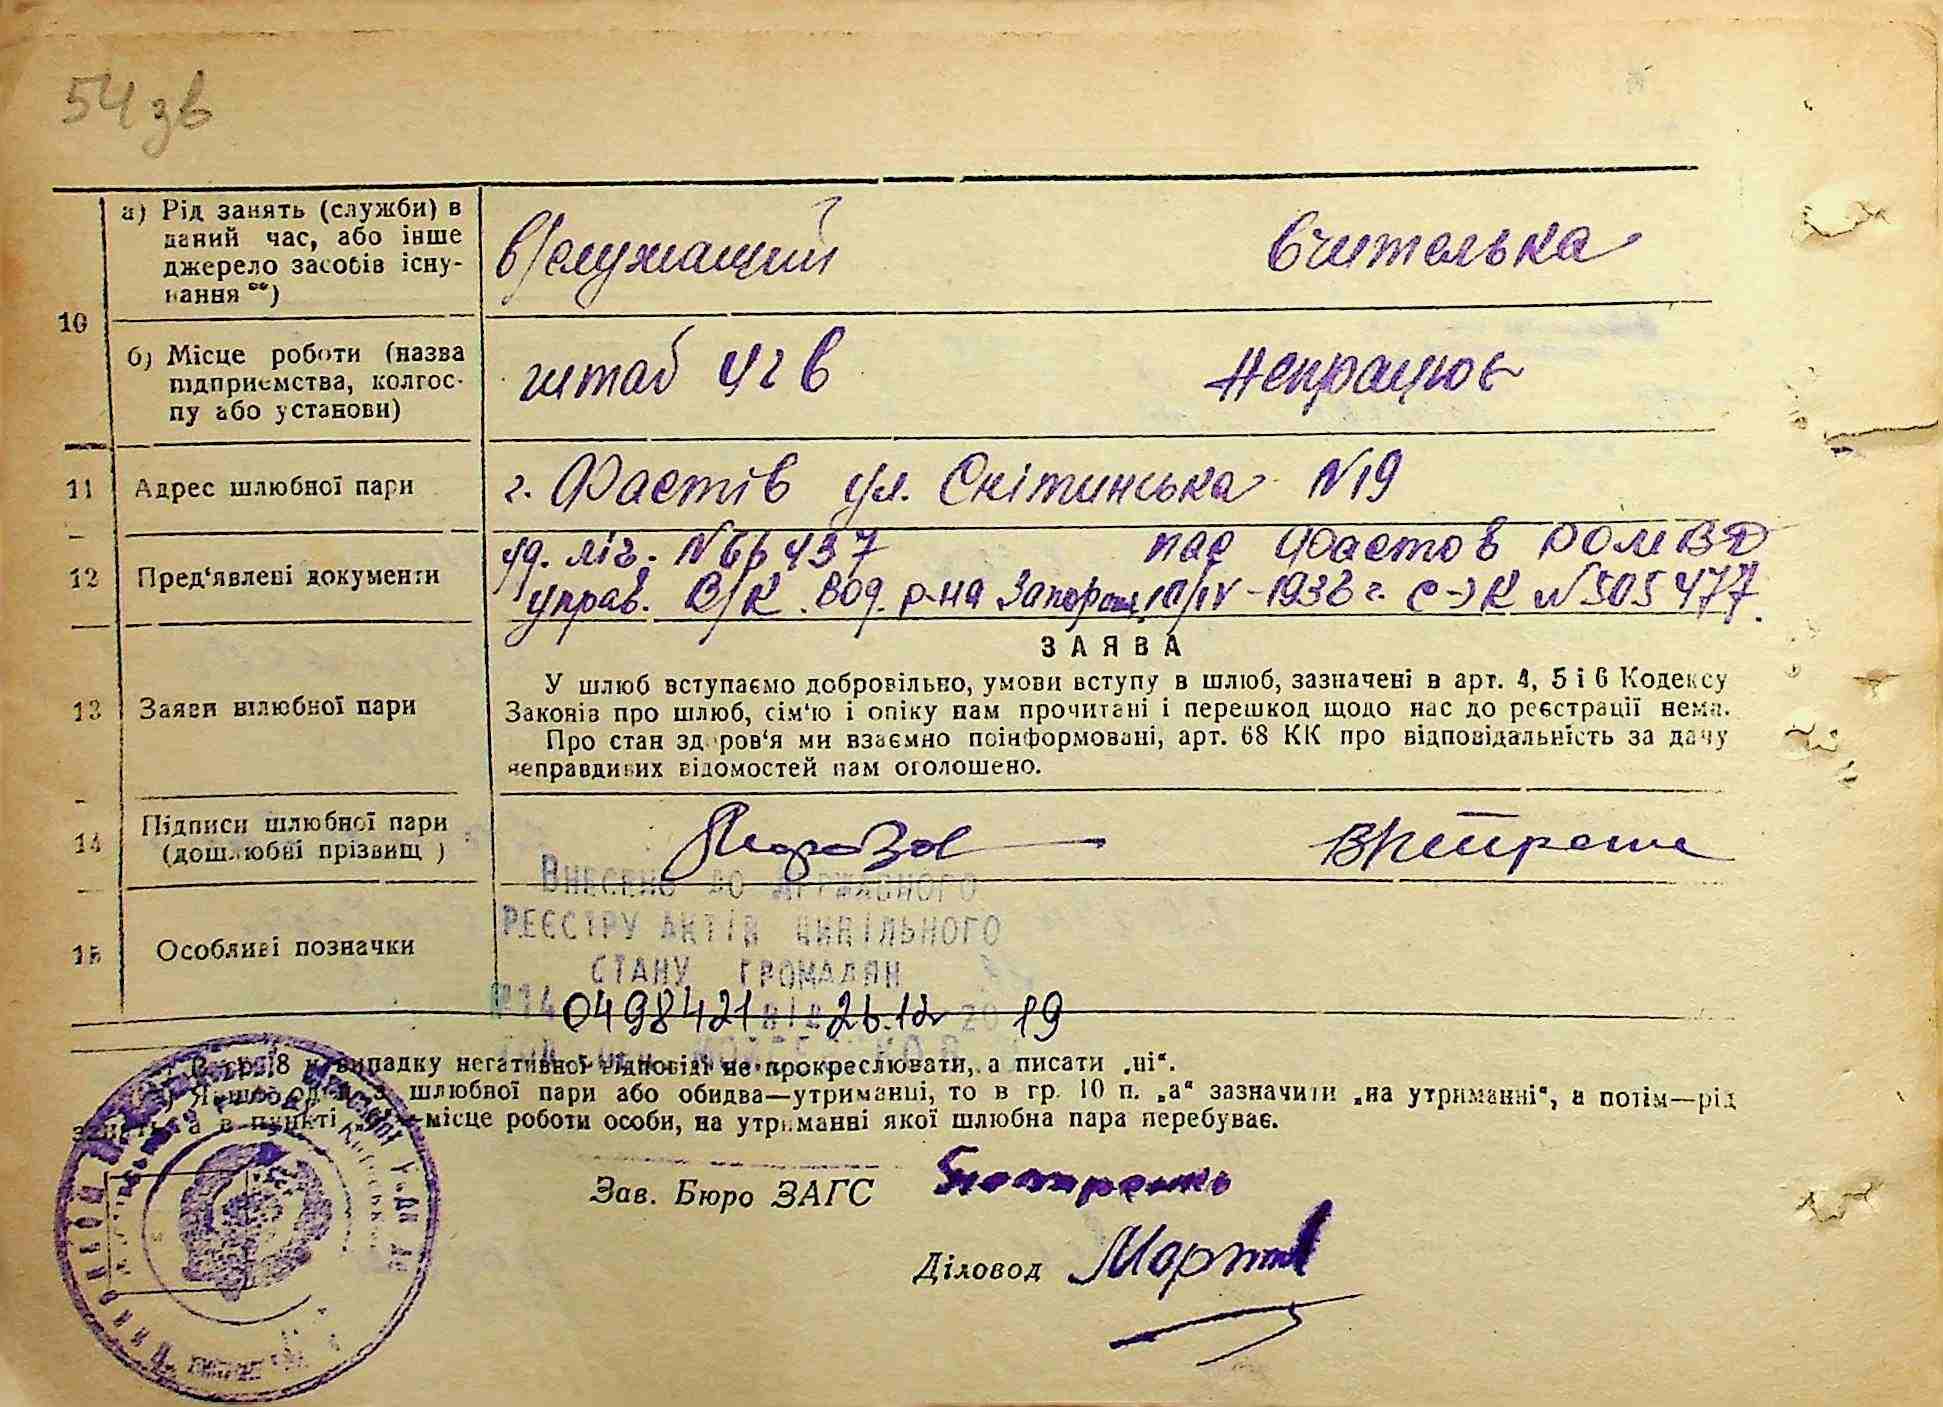 54 зв
а) Рід занять (служби) в
даний час, або інше
джерело засобів існу-
вання **)
в/служащий вчителька
10
б) Місце роботи (назва
підприємства, колгос-
пу або установи)
штаб непрацює
11 Адрес шлюбної пари г. Фастів ул. Снітинська N19
12 Пред'явлені документи
уд. ліч. N 66437 пас Фастов РОМВД
управ. В/К. Вод. р-на Запорож. 10/IV-1936 г. с-ЭК N 505477.
ЗАЯВА
13 Заяви шлюбної пари
У шлюб вступаємо добровільно, умови вступу в шлюб, зазначені в арт. 4, 5 і 6 Кодексу
Законів про шлюб, сім'ю і опіку нам прочитані і перешкод щодо нас до реєстрації нема.
Про стан здоров'я ми взаємно поінформовані, арт. 68 КК про відповідальність за дачу
неправдивих відомостей нам оголошено.
14 Підписи шлюбної пари
(дошлюбні прізвищ )
Внесено до Державного
реєстру актів цивільного
стану громадян
15 Особливі позначки
№14 0498421 від 26.12 2019
В гр. 8 у випадку негативної відповіді не прокреслювати, а писати „ні“.
Якщо один з шлюбної пари або обидва—утриманці, то в гр. 10 п. „а“ зазначити „на утриманні“, а потім—рід
занять та в пункті місце роботи особи, на утриманні якої шлюбна пара перебуває.
Зав. Бюро ЗАГС
Діловод